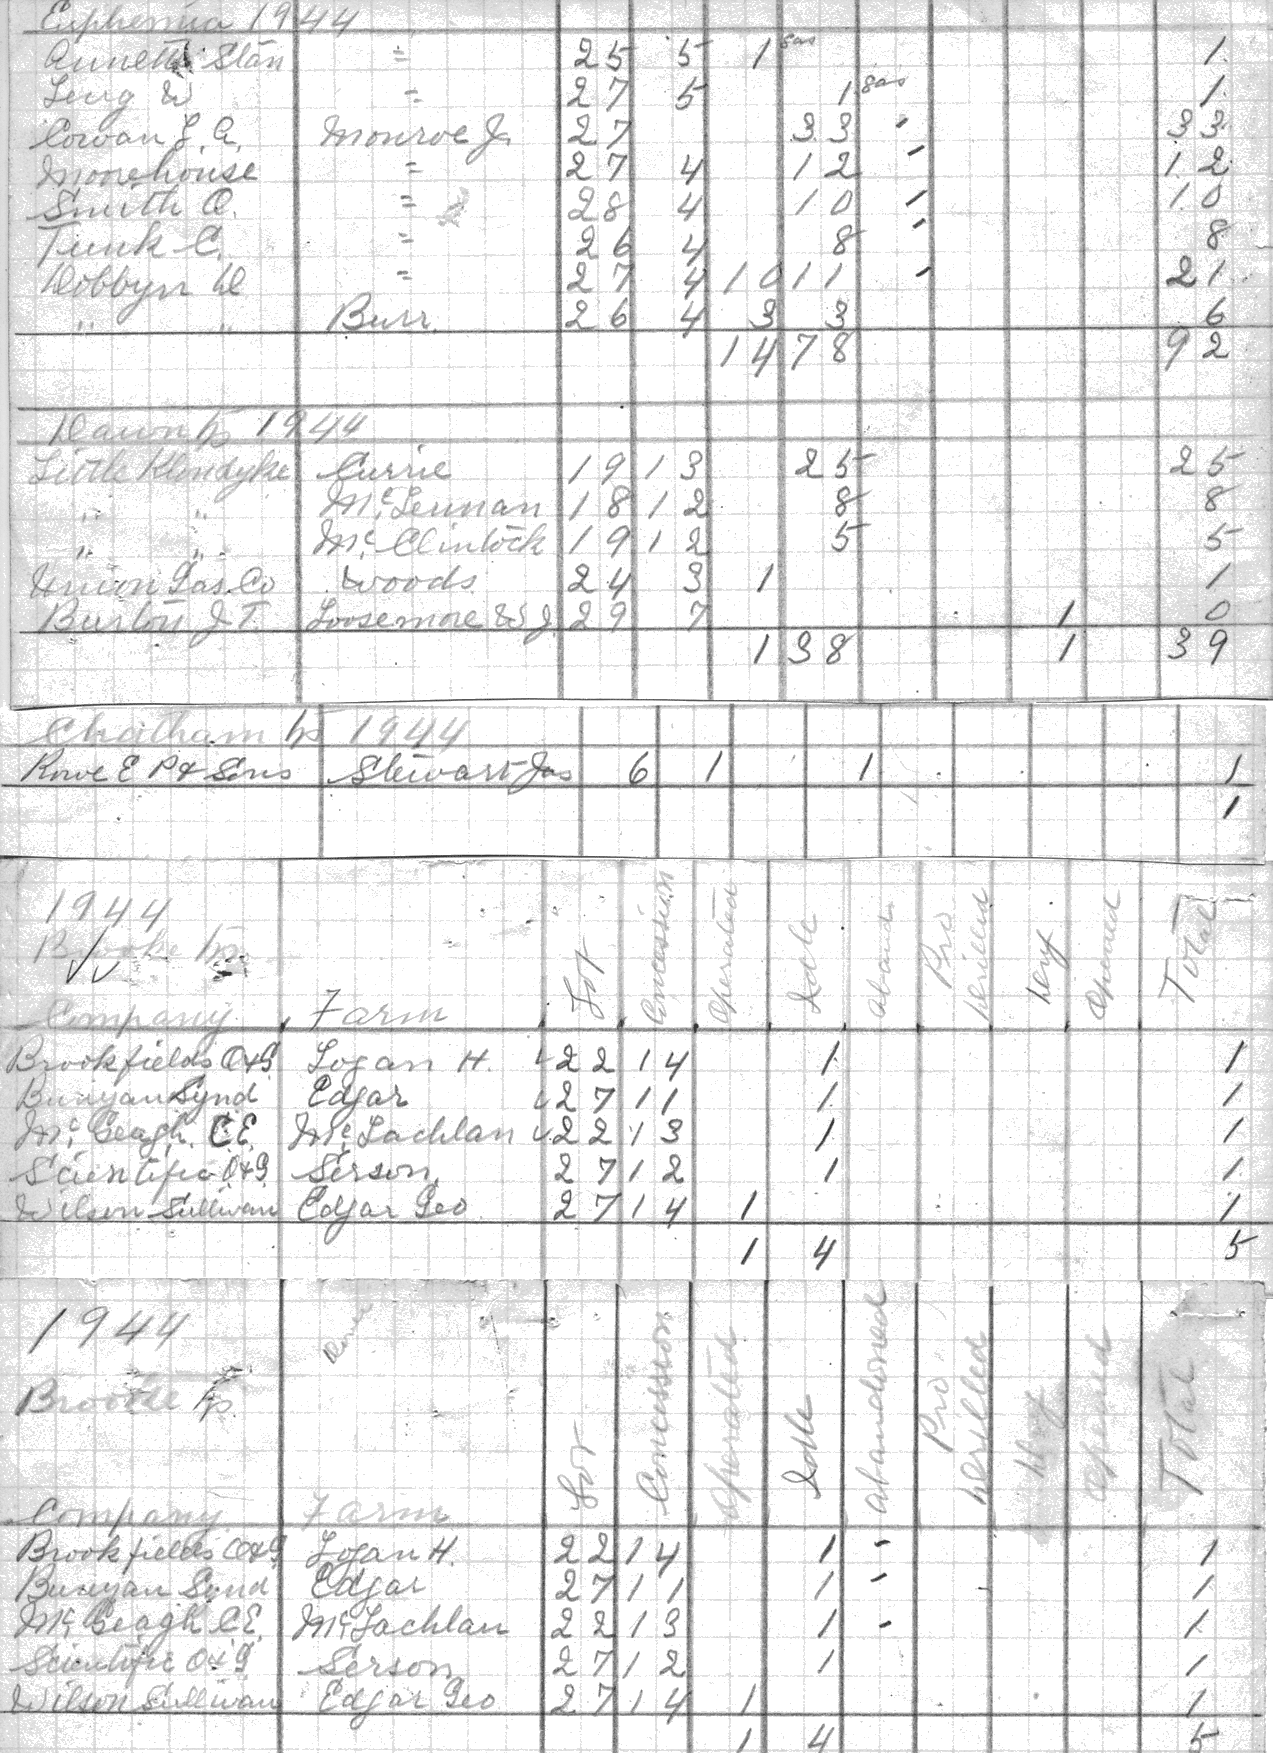 Euphemia 1944
Annett Stan " 25 5 1 gas 1
Leng W " 27 5 1 gas 1
Cowan L. A. Monroe J. 27 33 " 33
Moorehouse " 27 4 12 " 12
Smith O. " 28 4 10 " 10
Tunk C. " 26 4 8 " 8
Dobbyn D " 27 4 10 11 " 21
" " Burr. 26 4 3 3 6
14 78 92
Dawn Tp 1944
Little Klondyke Currie 19 13 25 25
" " McLennan 18 12 8 8
" " McClintock 19 12 5 5
Union Gas Co Woods 24 3 1 1
Burton J T. Loosemore W J. 29 7 1 0
1 38 1 39
Chatham Tp 1944
Rowe E P & Sons Stewart Jas 6 1 1 1
1
1944
Brooke Tp.
Company Farm Lot Concession Operated Idle aband. Pro Drilled Dry Opened Total
Brookfields O&G Logan H. 22 14 1 1
Bunyan Synd Edgar 27 11 1 1
Mc Geagh C E. McLachlan 22 13 1 1
Scientific O&G Serson 27 12 1 1
Wilson Sullivan Edgar Geo 27 14 1 1
1 4 5
1944
Brooke Tp.
Company Farm Lot Concession Operated Idle abandoned Pro Drilled Dry Opened Total
Brookfields O&G Logan H. 22 14 1 - 1
Bunyan Synd Edgar 27 11 1 - 1
Mc Geagh C E. McLachlan 22 13 1 - 1
Scientific O&G Serson 27 12 1 1
Wilson Sullivan Edgar Geo 27 14 1 1
1 4 5